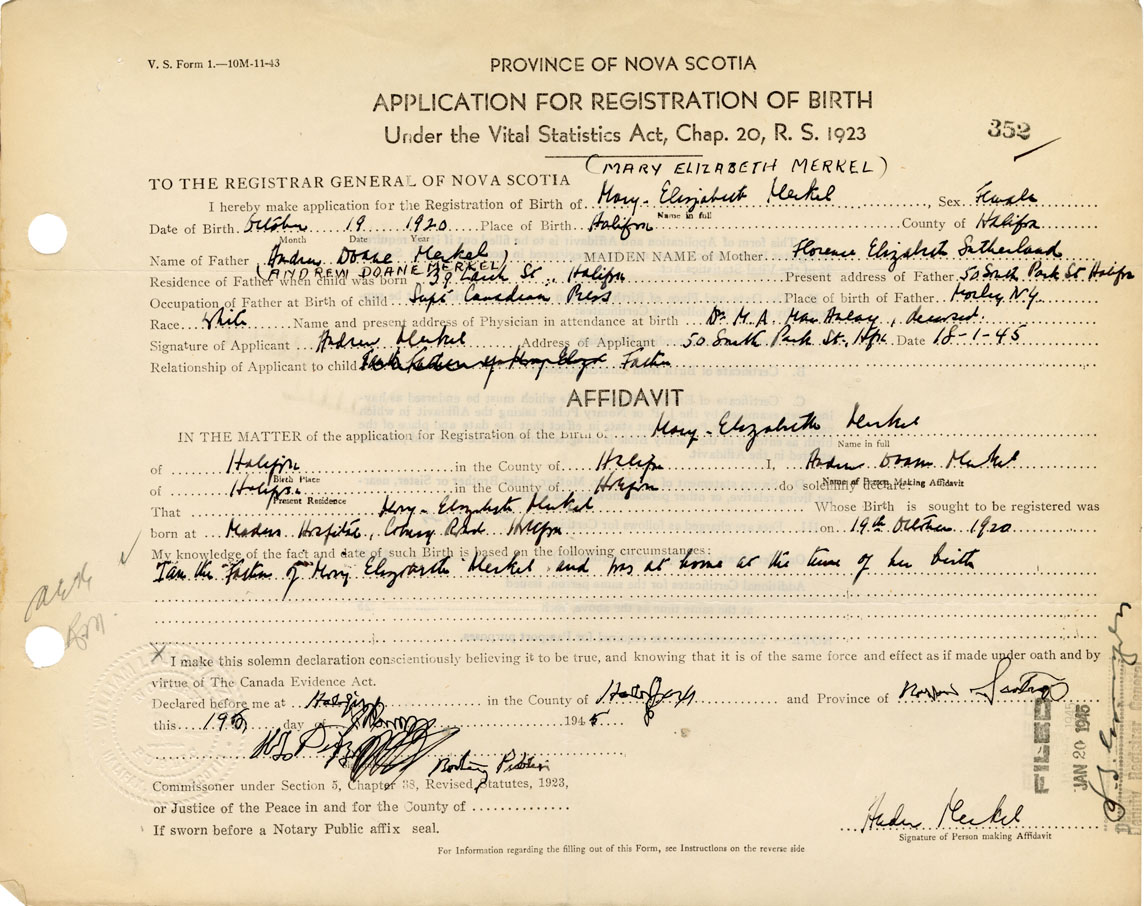 V. S. Form 1.—10M-11-43
PROVINCE OF NOVA SCOTIA
APPLICATION FOR REGISTRATION OF BIRTH
Under the Vital Statistics Act, Chap. 20, R. S. 1923
352
(MARY ELIZABETH MERKEL)
TO THE REGISTRAR GENERAL OF NOVA SCOTIA
I hereby make application for the Registration of Birth of Mary-Elizabeth Merkel, Sex Female
Name in full
Date of Birth October 19 1920 Place of Birth Halifax County of Halifax
Month Date Year
Name of Father Andrew Doane Merkel MAIDEN NAME of Mother Florence Elizabeth Sutherland
(ANDREW DOANE MERKEL)
Residence of Father when child was born 39 St., Halifax Present address of Father 50 South Park St Halifax
Occupation of Father at Birth of child Supt Canadian Press Place of birth of Father N.Y.
Race White Name and present address of Physician in attendance at birth Dr M. A. , deceased.
Signature of Applicant Andrew Merkel Address of Applicant 50 South Park St., Hfx Date 18-1-45
Relationship of Applicant to child Father
AFFIDAVIT
IN THE MATTER of the application for Registration of the Birth of Mary-Elizabeth Merkel
Name in full
of Halifax in the County of Halifax I, Andrew Doane Merkel
Birth Place Name of Person Making Affidavit
of Halifax in the County of Halifax do solemnly declare:
Present Residence
That Mary-Elizabeth Merkel Whose Birth is sought to be registered was
born at Hospital, Coburg Road Halifax on 19th October 1920
My knowledge of the fact and date of such Birth is based on the following circumstances:
I am the father of Mary Elizabeth Merkel and was at home at the time of her birth
X I make this solemn declaration conscientiously believing it to be true, and knowing that it is of the same force and effect as if made under oath and by
virtue of The Canada Evidence Act.
Declared before me at Halifax in the County of Halifax and Province of Nova Scotia
this 19th day of January 1945
Commissioner under Section 5, Chapter 38, Revised Statutes, 1923,
or Justice of the Peace in and for the County of
If sworn before a Notary Public affix seal.
FILED
JAN 20 1945
Deputy Registrar General
Andrew Merkel
Signature of Person making Affidavit
For Information regarding the filling out of this Form, see Instructions on the reverse side